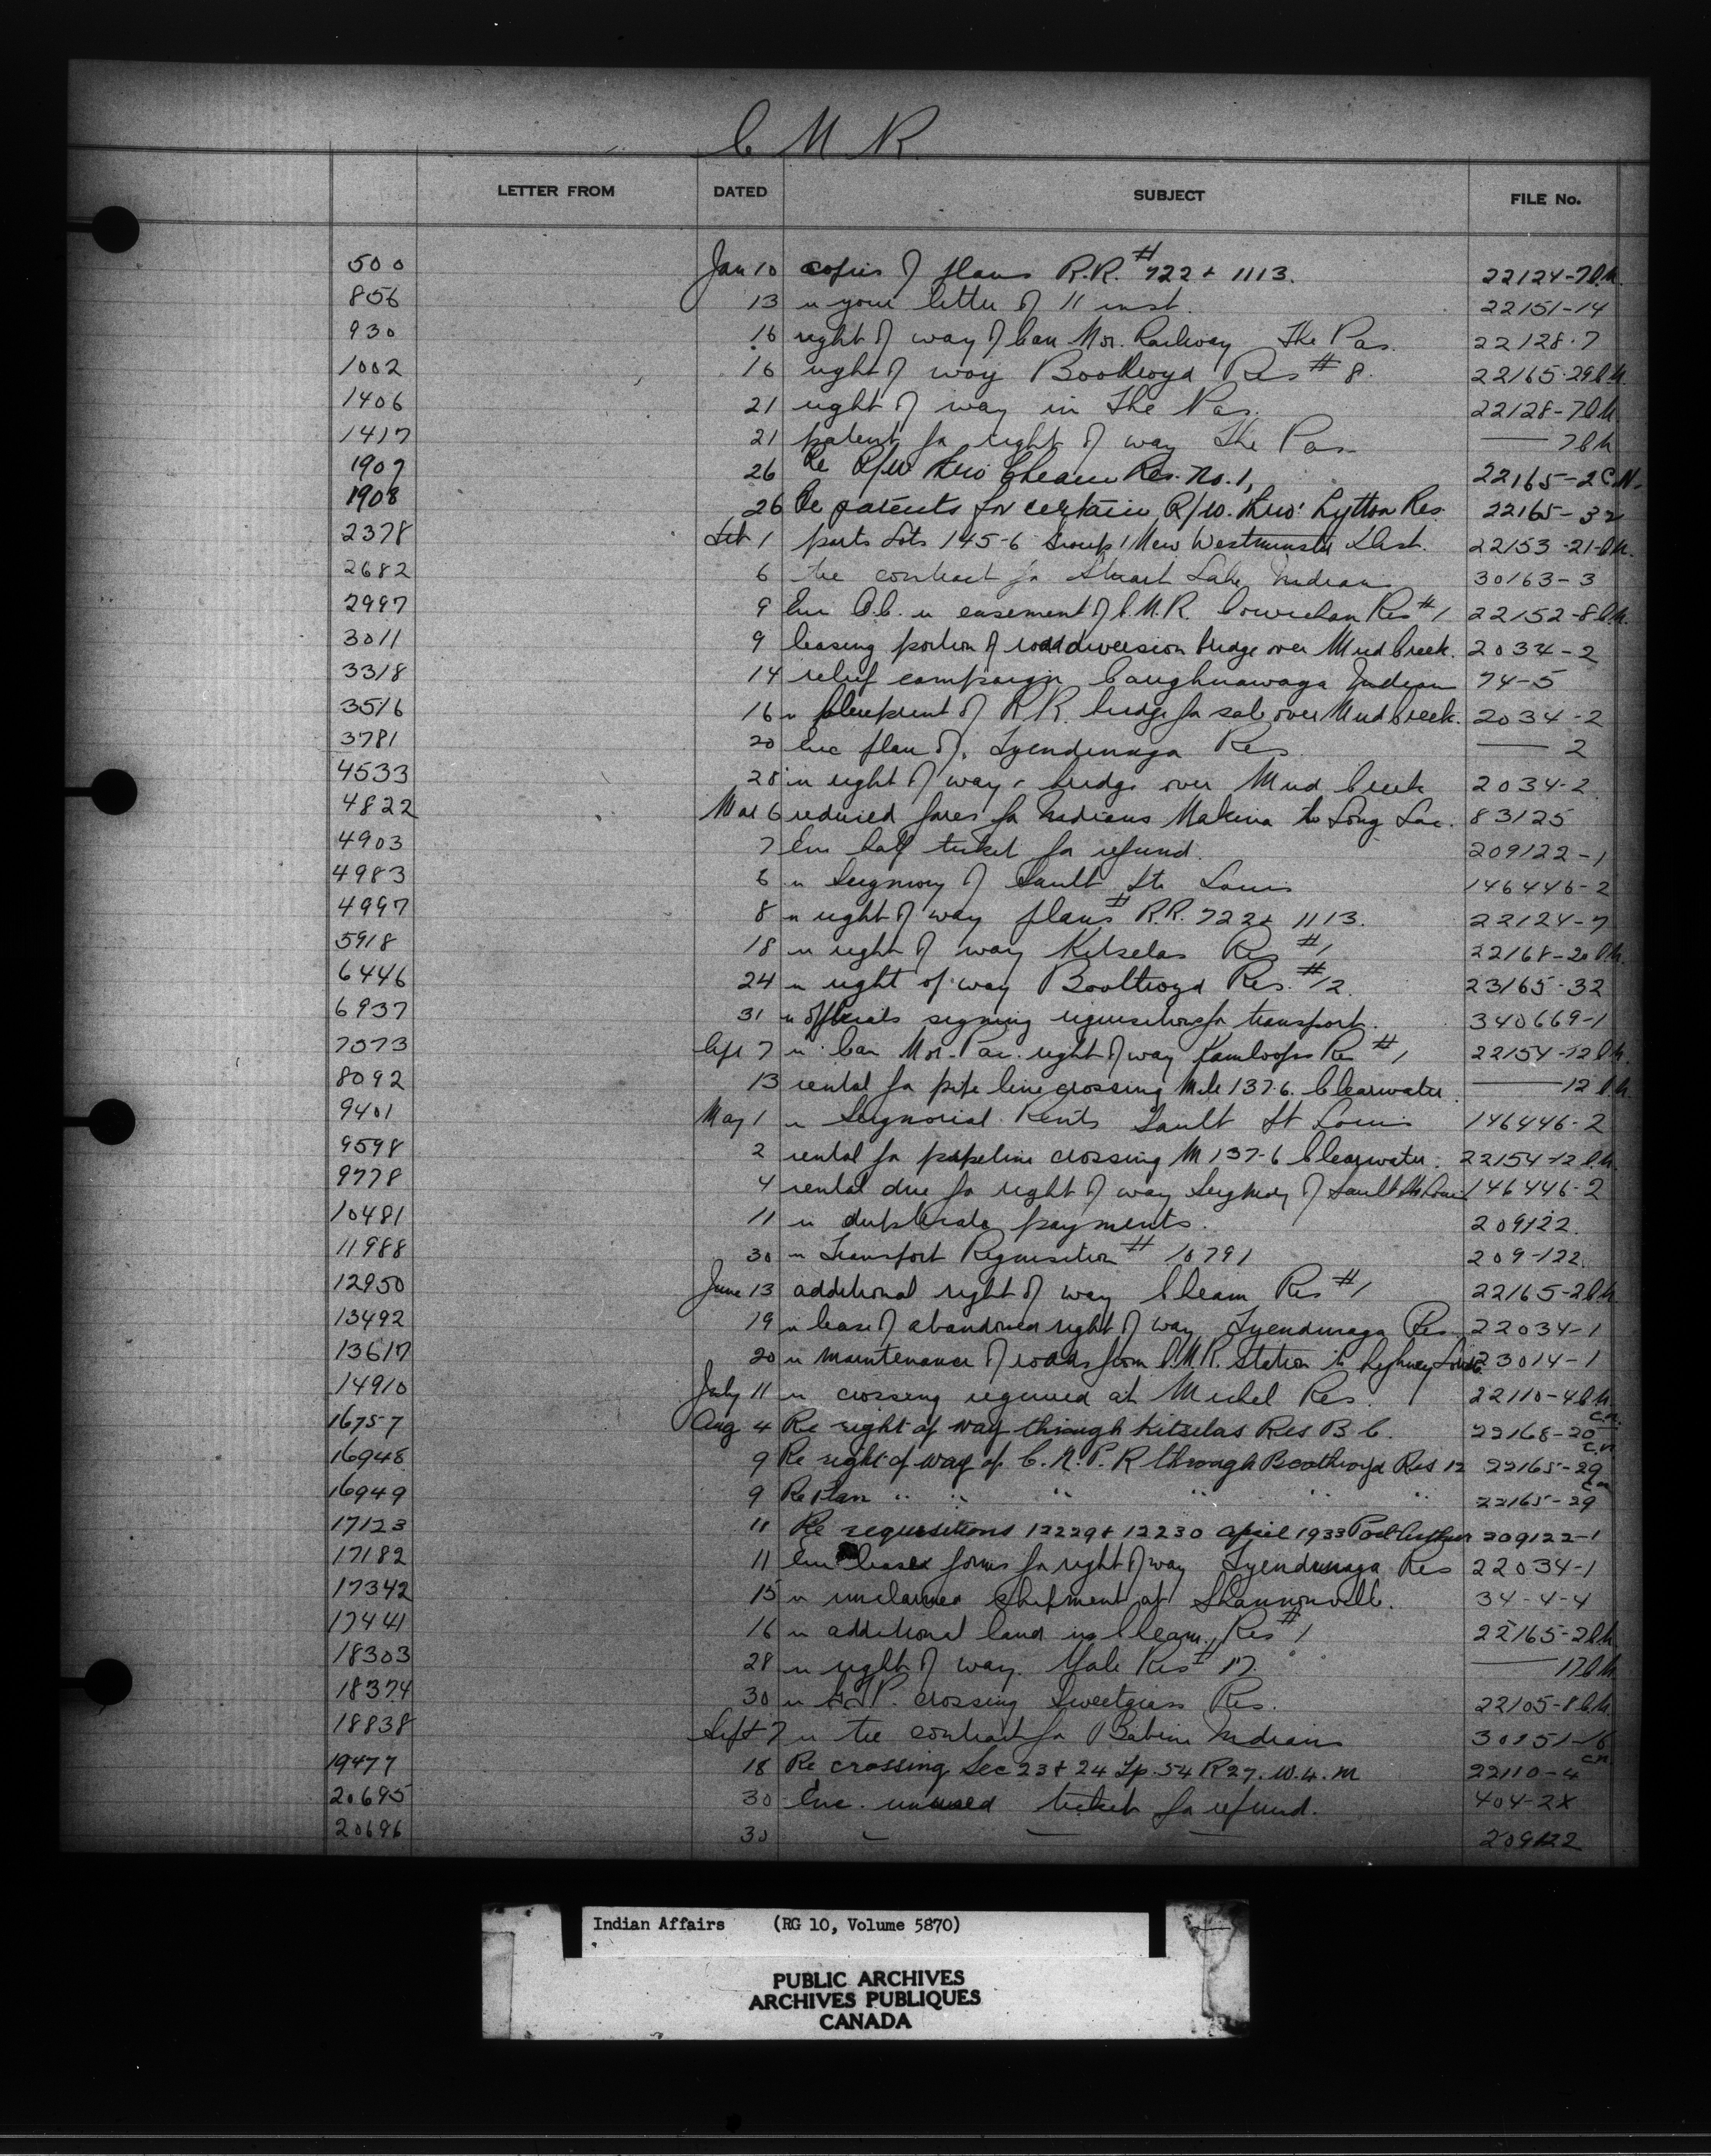 C N R
LETTER FROM DATED SUBJECT FILE No.
500 Jan 10 copies of plans R.R. # 722 + 1113. 22124-7 C.N.
856 13 re your letter of 11 inst. 22151-14
930 16 right of way of Can Nor. Railway The Pas. 22128-7
1002 16 right of way Boothroyd Res # 8. 22165-29 C.N.
1406 21 right of way in The Pas. 22128-7 C.N.
1417 21 patent for right of way The Pas — 7 C.N.
1907 26 Re R/W thro Cheam Res. No. 1, 22165-2 C.N.
1908 26 Re patents for certain R/W. thro' Lytton Res. 22165-32
2378 Feb 1 parts Lots 145-6 Group 1 New Westminster Dist. 22153-21-C.N.
2682 6 tie contract for Stuart Lake Indians 30163-3
2997 9 Enc O.C. re easement of C.N.R. Cowichan Res # 1 22152-8 C.N.
3011 9 leasing portion of road diversion bridge over Mud Creek. 2034-2
3318 14 relief campaign Caughnawaga Indians 74-5
3516 16 re blueprint of R.R. bridge for sale over Mud Creek. 2034-2
3781 20 Enc plan of Tyendinaga Res — 2
4533 28 re right of way + bridge over Mud Creek 2034-2
4822 Mar 6 reduced fares for Indians Nakina to Long Lac. 83125
4903 7 Enc half ticket for refund. 209122-1
4983 8 re Seigniory of Sault St. Louis 146446-2
4997 8 re right of way plans # R.R. 722 + 1113. 22124-7
5918 18 re right of way Kitselas Res # 1 22168-20 C.N.
6446 24 re right of way Boothroyd Res. # 12. 23165-32
6937 31 re officials signing requisitions for transport. 340669-1
7573 Apl 7 re Can Nor. Pac. right of way Kamloops Res # 1 22154-12 C.N.
8092 13 rental for pipe line crossing Mile 137.6. Clearwater. — 12 C.N.
9401 May 1 re Seignorial Rents Sault St Louis 146446-2
9598 2 rental for pipeline crossing M 137-6 Clearwater. 22154-12 C.N.
9778 4 rental due for right of way Seigniory of Sault St. Louis 146446-2
10481 11 re duplicate payments. 209122.
11988 30 re Transport Requisition # 10791 209-122.
12950 June 13 additional right of way Cheam Res # 1 22165-2 C.N.
13492 19 re lease of abandoned right of way Tyendinaga Res 22034-1
13617 20 re maintenance of roads from C.N.R. Station to highway 23014-1
14910 July 11 re crossing required at Michel Res. 22110-4 C.N.
16757 Aug 4 Re right of way through Kitselas Res B.C. 22168-20 C.N.
16948 9 Re right of way of C.N.P.R through Boothroyd Res 12 22165-29 C.N.
16949 9 Re Plan " " " " " " 22165-29 C.N.
17123 11 Re requisitions 12229 + 12230 April 1933 Port Arthur 209122-1
17182 11 Enc lease forms for right of way Tyendinaga Res 22034-1
17342 15 re unclaimed shipment at Shannonville. 34-4-4
17441 16 re additional land in Cheam Res # 1 22165-2 C.N.
18303 28 re right of way. Yale Res # 17. — 17 C.N.
18374 30 re crossing Sweetgrass Res. 22105-8 C.N.
18838 Sept 7 re tie contract for Babine Indians 30151-16
19477 18 Re crossing Sec 23 + 24 Tp. 54 R 27. W. 4. M 22110-4 C.N.
20695 30 Enc. unused ticket for refund. 404-2X
20696 30 — — — 209122
Indian Affairs (RG 10, Volume 5870)
PUBLIC ARCHIVES
ARCHIVES PUBLIQUES
CANADA